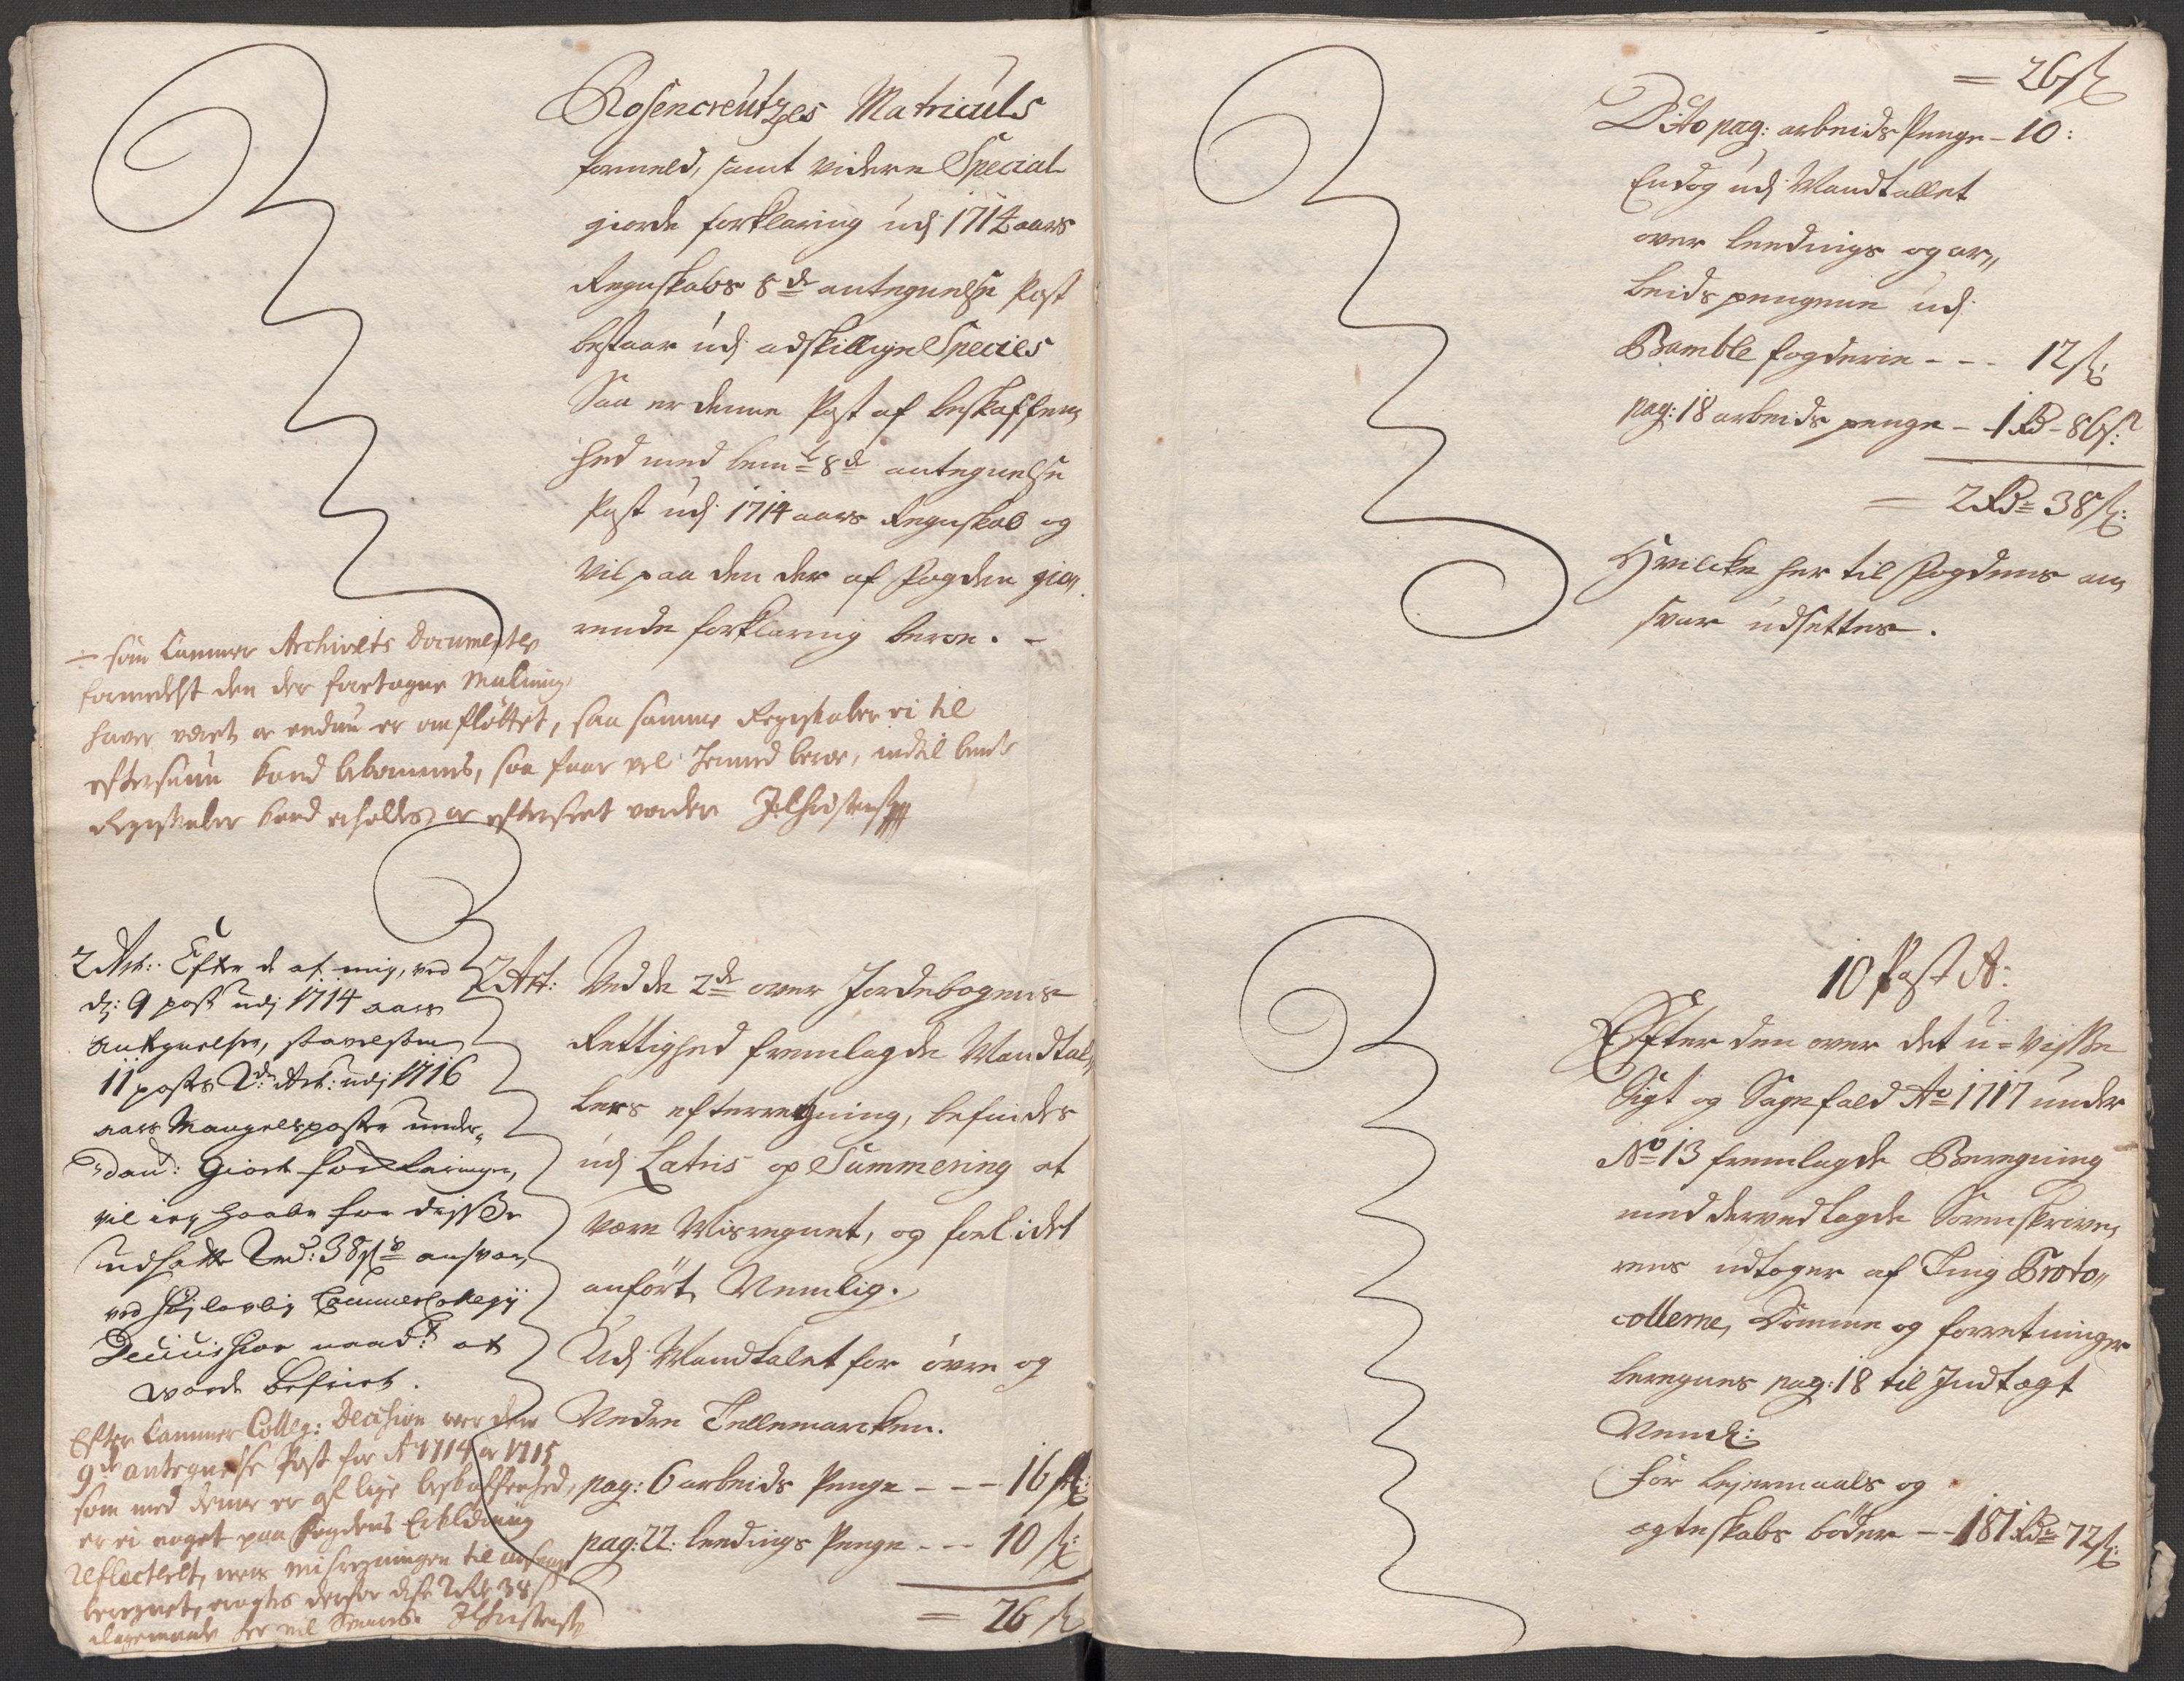 Rosencreutzes Matriculs
formeld, samt videre Special
giorde forklaring udj 1714 aars
Regnskabs 8de antegnelse Post
bestaar udj adskillige Species
Saa er denne Post af beskaffen,
hed med bemte 8de antegnelse
Post udj 1714 aars Regnskab og
vil paa den der af Fogden giø,,
rende forklaring beroe. –
÷ som Cammer Archivets Documenter
formedelst den der foretagne Maling
haver været og endnu er omfløttet, saa samme Regnskaber ei til
eftersiun kand bekommes, saa faar vel hermed beroe, indtil bemte
Regnskaber kand erholdes og efterseet vorder
2 Art: Efter de af mig, ved
dj: 9 post udj 1714 aars
Antegnelser, saavelsom
11 posts 2de Art: udj 1716
aars Mangelsposter under,,
dan: giorte forklaringer,
vil ieg haabe for disse
udsatte 2 rd: 38 sk ansvar,
ved Høylovlig CammerCollegij
Decission naad: at
vorde befriet.
Efter Cammer Colleg: Decision over den
9de antegnelse Post for Ao 1714 og 1715
som med denne er af lige beskaffenhed,
er ei noget paa fogdens Erklæring
reflecteret, men misregningen til ansvar
beregnet, derfor disse 2 Rd 38 s
2 Art: Ved de 2de over Jordebogens
Rettighed fremlagde Mandtal,,
lers efterregning, befindes
udj Latris og Summering at
være Misregnet, og forlidet
anført, Nemlig.
Udj Mandtalet for øvre og
Nedre Tellemarcken.
pag: 6 arbeids Penge - - - 16 sk:
pag: 22: leedings Penge - - - 10 sk:
= 26 sk
= 26 sk
Dito pag: arbeids Penge - 10:
Endog udj Mandtallet
over leedings og ar,,
beids pengene udj
Bamble fogderie - - - 12 sk:
pag: 18 arbeids penge - 1 Rd - 86 s:
= 2 Rd = 38 sk:
Hvilcke her til Fogdens an,
svar udsettes.
10 Post A:
Efter den over det u=visse
Sigt og Sagefald Ao 1717 under
No 13 fremlagde Beregning
med derved lagde Sorenskrive,
rens udtoger af Ting Proto,,
collerne, Domme og forretninger
beregnes pag: 18 til Indtægt
Neml:
for leiermaals og
egteskabs bøder - - 181 Rd = 72 sk: